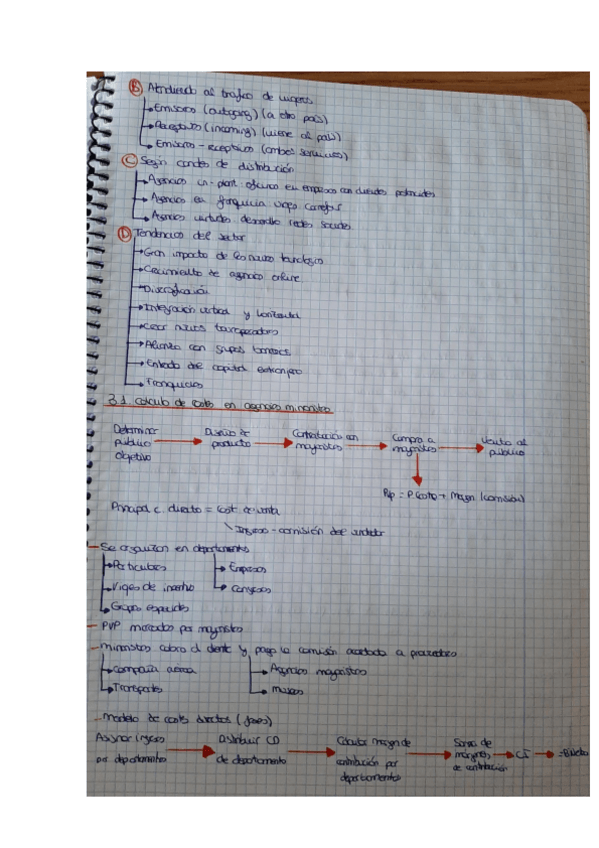 B Atendiendo al trafico de viajeros
Emisoras (outgoing) (a otro país)
Receptivos (incoming) (viene al país)
Emisoras - receptivos (ambos servicios)
C Según canales de distribución
Agencias in-plant oficina en empresas con clientes potenciales
Agencias en franquicia viajes carrefour
Agencias virtuales desarrollo redes sociales
D Tendencias del sector
Gran impacto de las nuevas tecnologías
Crecimiento de agencias online
Diversificación
Integración vertical y horizontal
Crear nuevos touroperadores
Alianza con grupos
Entrada de capital extranjero
Franquicias
3.1. Calculo de costes en agencias minoristas
Determinar público objetivo → Diseño de producto → Contratación con mayoristas → Compra a mayoristas → Venta al público
Pvp = P. Costo + Margen (comisión)
Principal c. directo = cost de venta
Ingreso - comisión del vendedor
- Se organizan en departamentos
Particulares → Empresas
Viajes de incentivo → Congresos
Grupos especiales
- PVP marcados por mayoristas
- minoristas cobra al cliente y paga la comisión acordada a proveedores
Compañía aérea → Agencias mayoristas
Transportes → museos
- Modelo de costes directos (fases)
Asignar ingresos por departamento → Distribuir CD de departamento → Calcular margen de contribución por departamentos → Suma de márgenes de contribución → CI →